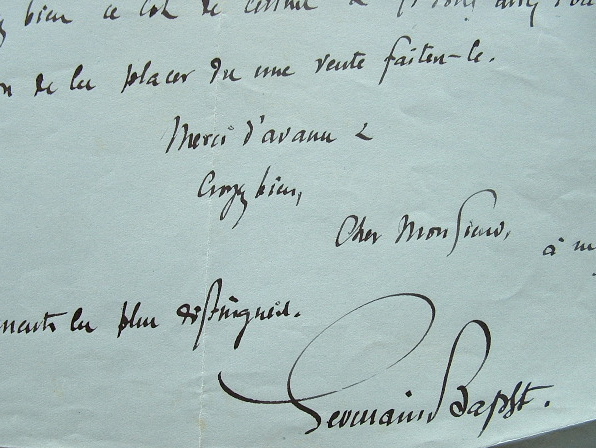 bien ce lot de
de les placer ds une vente faites-le.
Merci d'avance &
Croyez bien,
Cher Monsieur, à m
ments les plus distingués.
Germain Bapst.